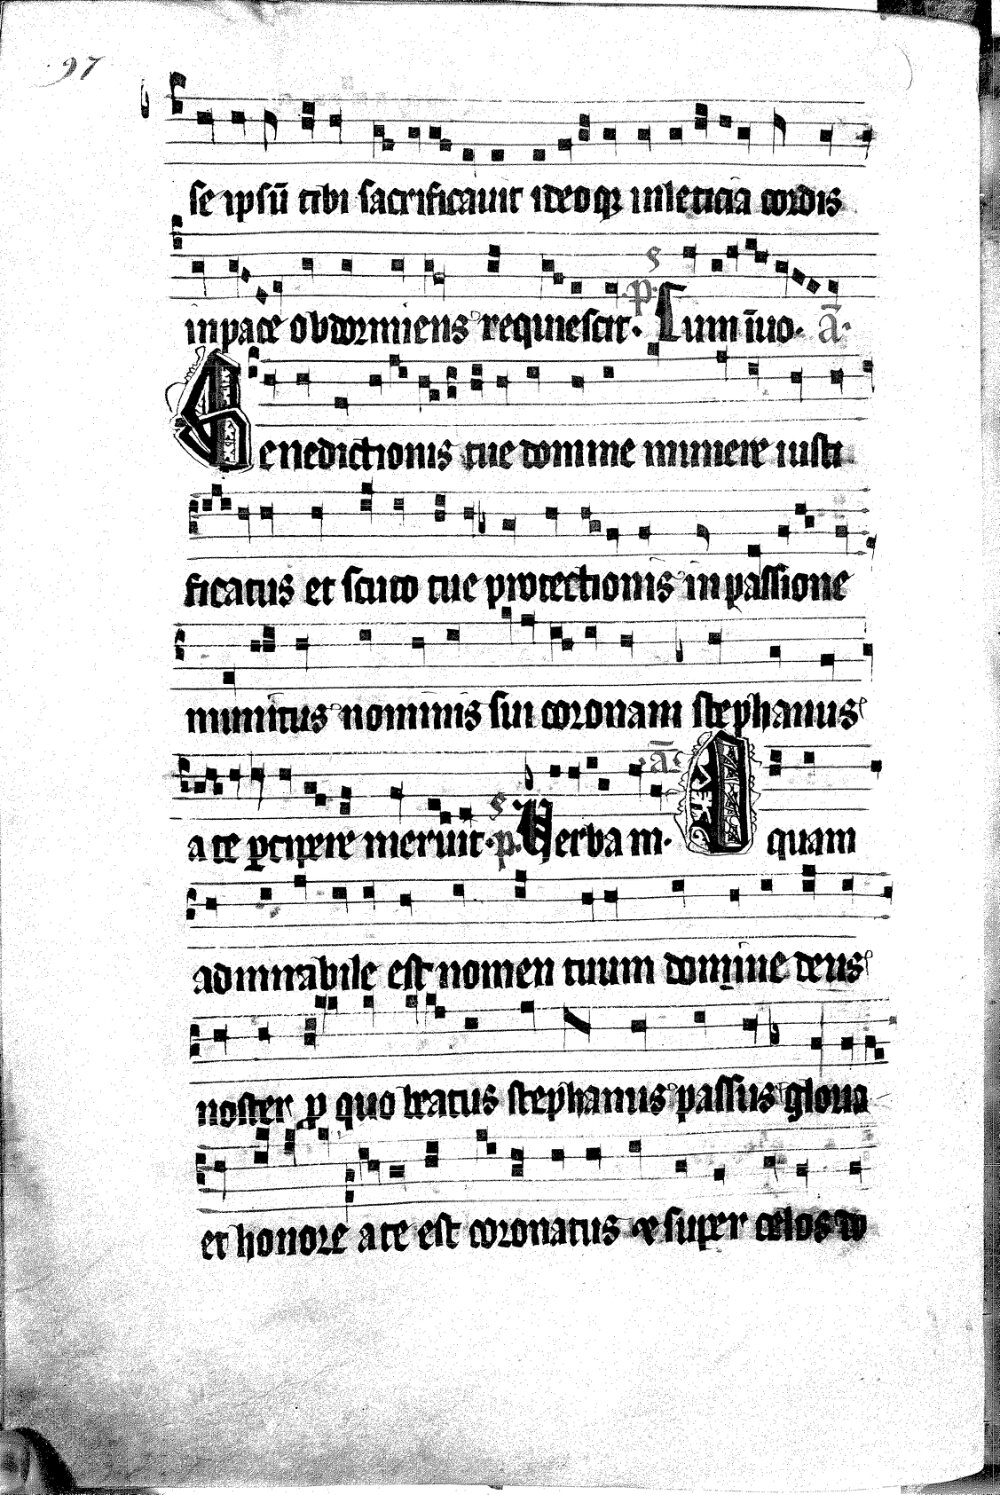 97
se ipsū tibi sacrificauit ideoqꝫ in leticia cordis
in pace obdormiens requiescit. p̄. s Cum īuo. ā.
Benedictionis tue domine munere iusti
ficatus et scuto tue protectionis in passione
munitus nominis sui coronam stephanus
a te ꝑcipere meruit. p̄. s Uerba m. ā. O quam
admirabile est nomen tuum domine deus
noster ꝓ quo beatus stephanus passus gloria
et honore a te est coronatus et super celos do